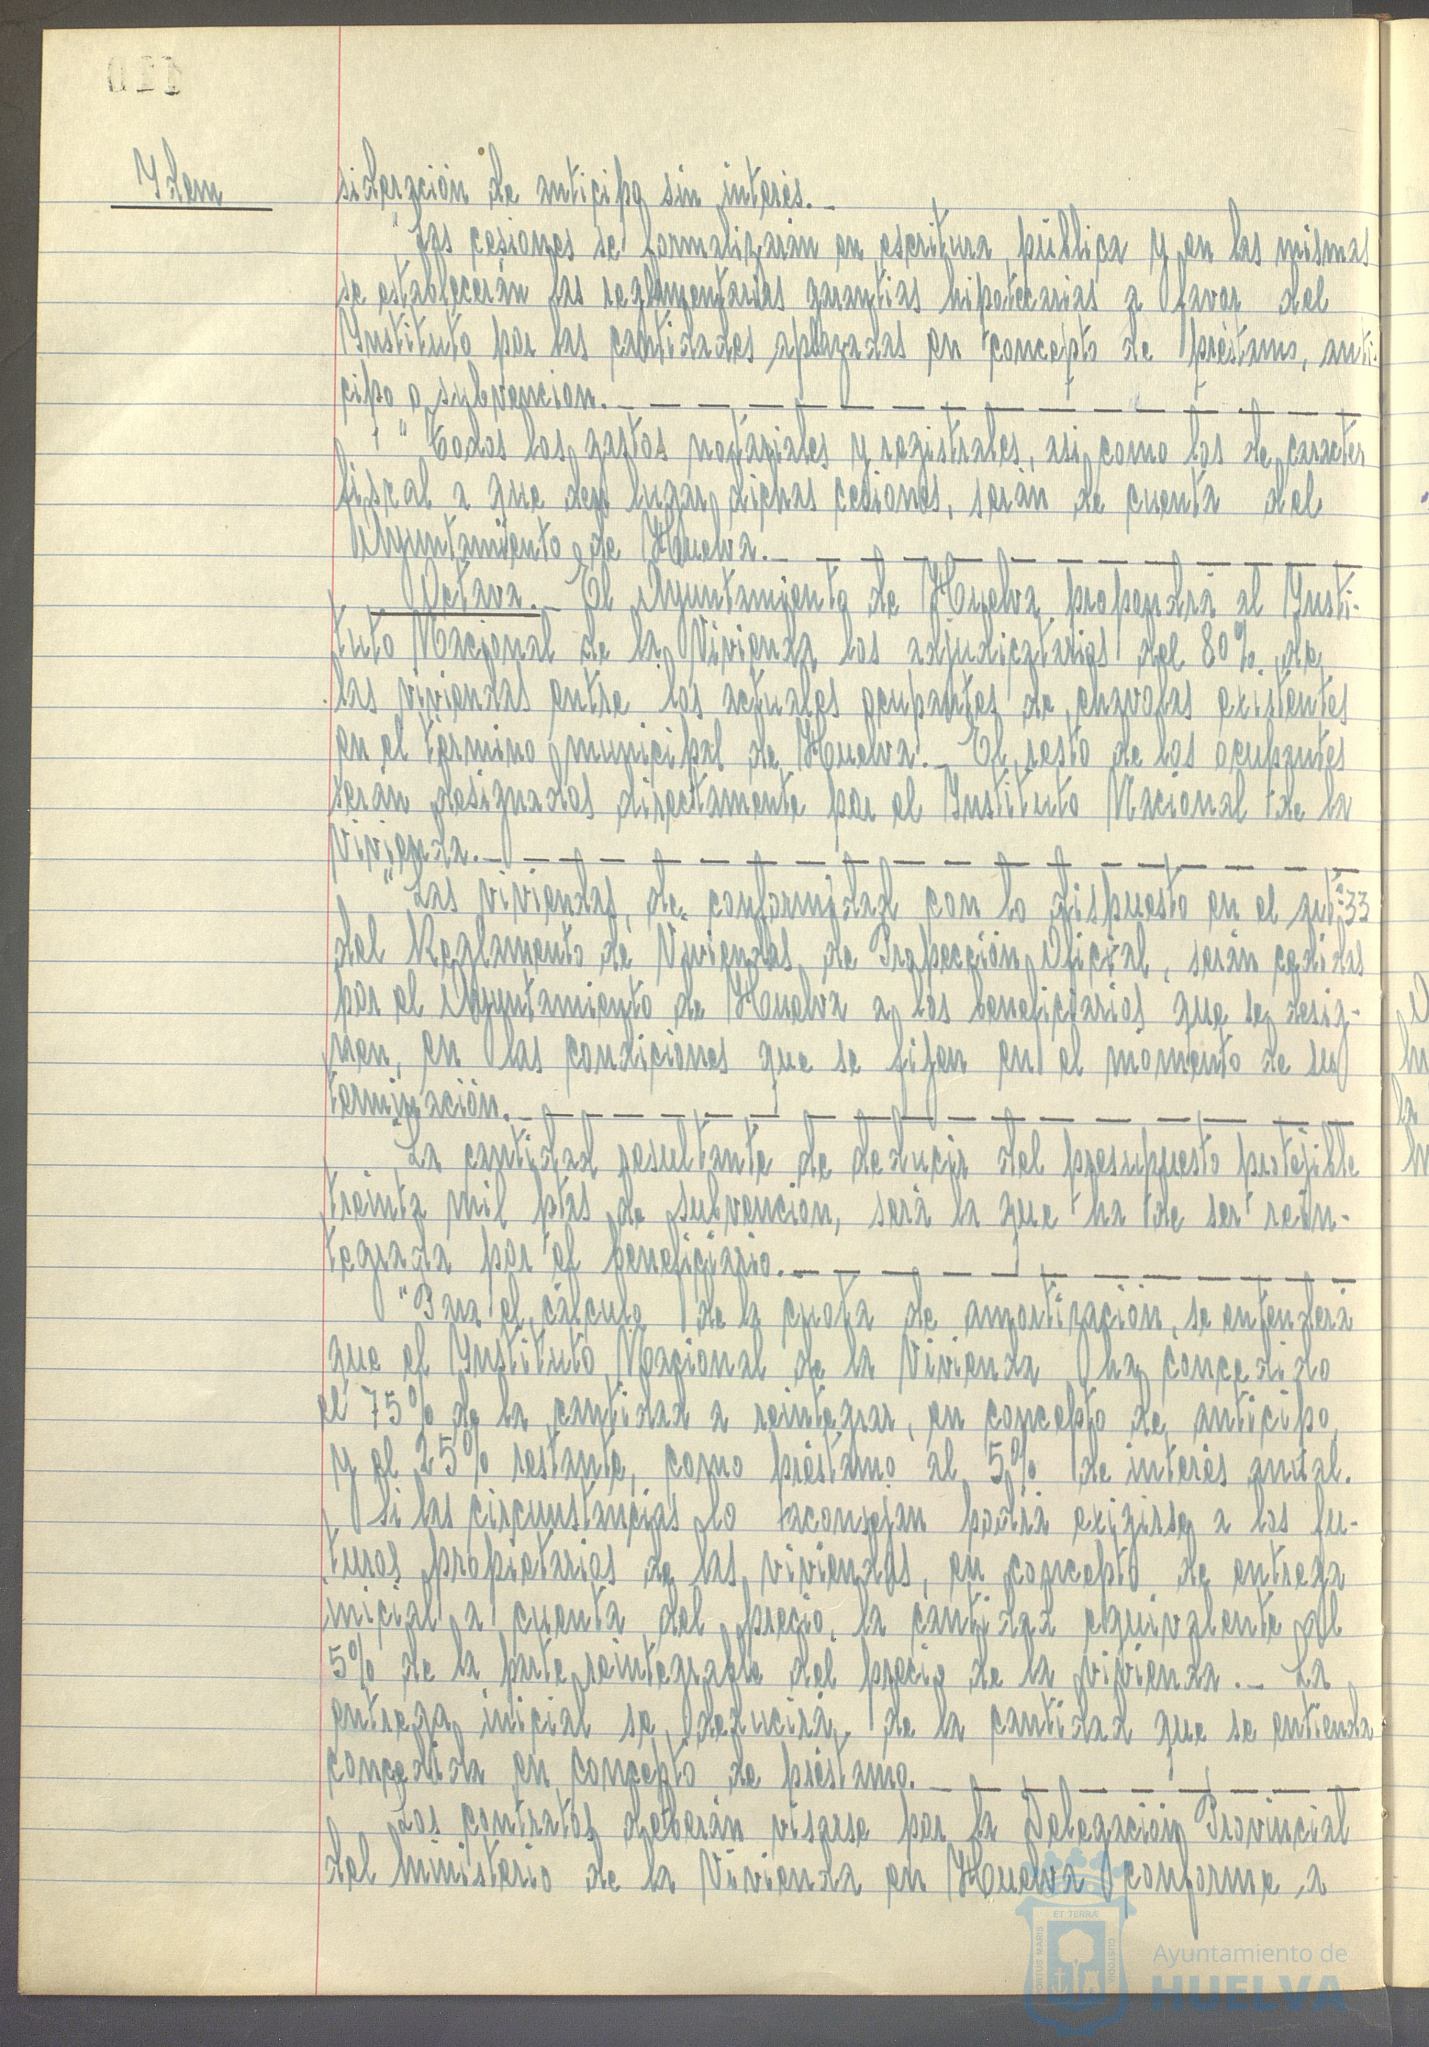 110
Ydem
sideración de anticipo sin interés._
"Las cesiones se formalizarán en escritura pública y en las mismas
se establecerán las reglamentarias garantias hipotecarias a favor del
Ynstituto por las cantidades aplazadas en concepto de préstamo, anti-
cipo o subvencion._ _ _ _ _ _ _ _ _ _ _ _
"Todos los gastos notariales y registrales, asi como los de caracter
fiscal a que den lugar dichas cesiones, serán de cuenta del
Ayuntamiento de Huelva._ _ _ _ _ _ _ _ _ _
Octava._ El Ayuntamiento de Huelva propondrá al Ynsti-
tuto Nacional de la Vivienda los adjudicatarios del 80% de
las viviendas entre los actuales ocupantes de chavolas existentes
en el término municipal de Huelva._ El resto de los ocupantes
serán designados directamente por el Ynstituto Nacional de la
Vivienda._ _ _ _ _ _ _ _ _ _ _ _ _ _
"Las viviendas, de conformidad con lo dispuesto en el artº 33
del Reglamento de Viviendas de Propección Oficial, serán cedidas
por el Ayuntamiento de Huelva a los beneficiarios que se desig-
nen, en las condiciones que se fijen en el momento de su
terminación._ _ _ _ _ _ _ _ _ _ _ _ _
"La cantidad resultante de deducir del presupuesto protejible
treinta mil ptas de subvencion, será la que ha de ser rein-
tegrada por el beneficiario._ _ _ _ _ _ _ _ _
"Para el cálculo de la cuota de amortización, se entenderá
que el Ynstituto Nacional de la Vivienda ha concedido
el 75% de la cantidad a reintegrar, en concepto de anticipo
y el 25% restante, como préstamo al 5% de interés anual.
Si las circunstancias lo aconsejan podrá exigirse a los fu-
turos propietarios de las viviendas, en concepto de entrega
inicial a cuenta del precio, la cantidad equivalente al
5% de la parte reintegrable del precio de la vivienda._ La
entrega inicial se deducirá de la cantidad que se entienda
concedida en concepto de préstamo._ _ _ _ _ _ _
Los contratos deberán visarse por la Delegación Provincial
del Ministerio de la Vivienda en Huelva conforme a
PORTUS MARIS
ET TERRÆ
CUSTODIA
Ayuntamiento de
HUELVA